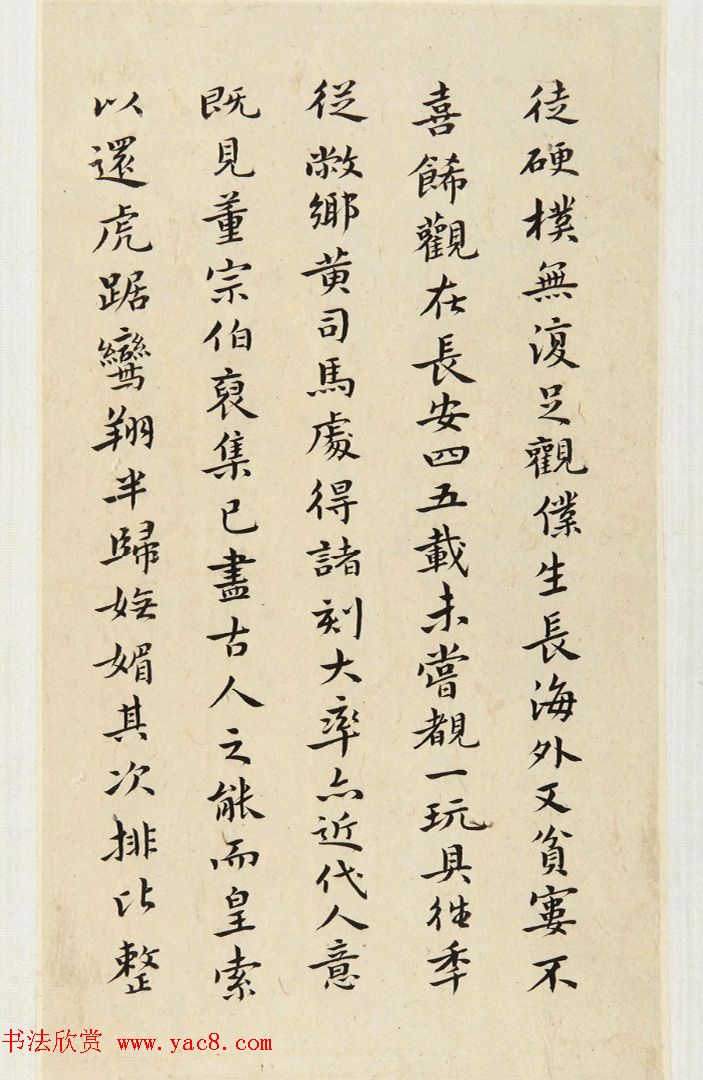 徒硬樸無復足觀僕生長海外又貧窶不
喜餙觀在長安四五載未嘗覩一玩具往季
從敝鄉黃司馬處得諸刻大率亦近代人意
既見董宗伯裒集已盡古人之能而皇索
以還虎踞鸞翔半歸嫵媚其次排比整
书法欣赏 www.yac8.com